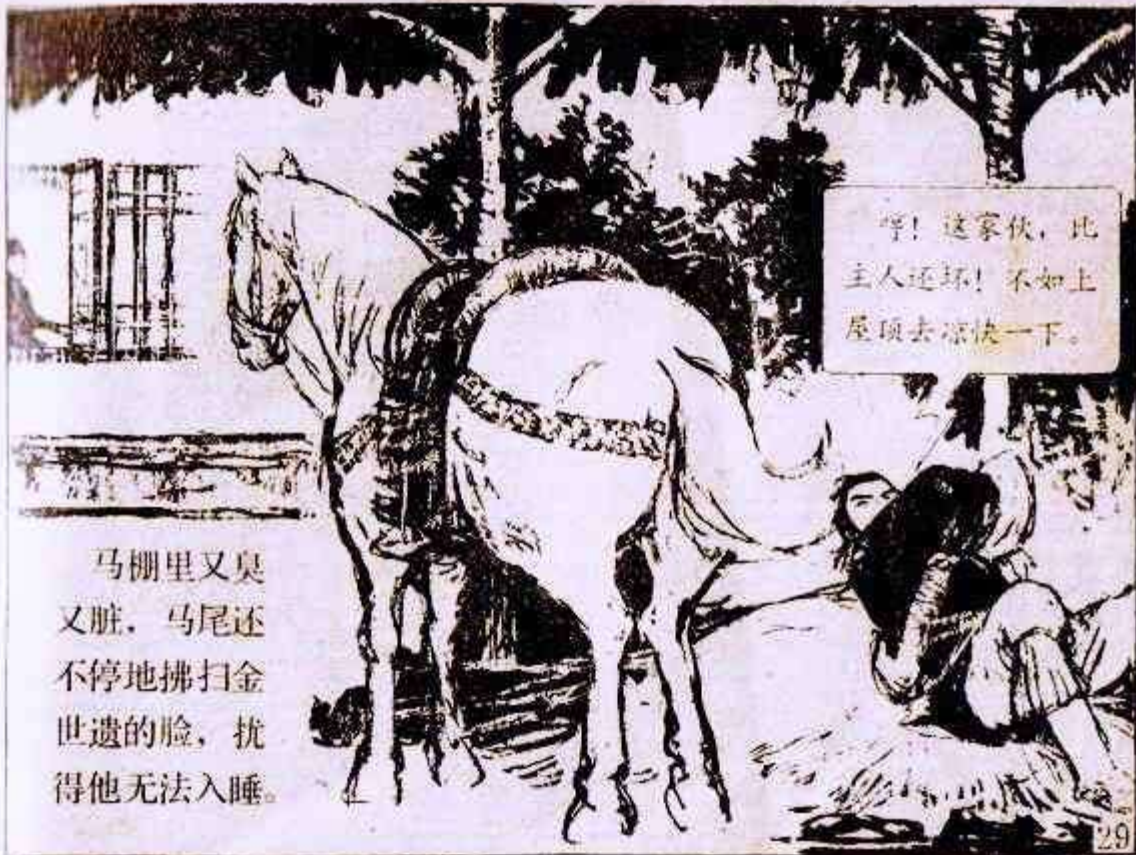 哼！这家伙，比
主人还坏！不如上
屋顶去凉快一下。
马棚里又臭
又脏，马尾还
不停地拂扫金
世遗的脸，扰
得他无法入睡。
29